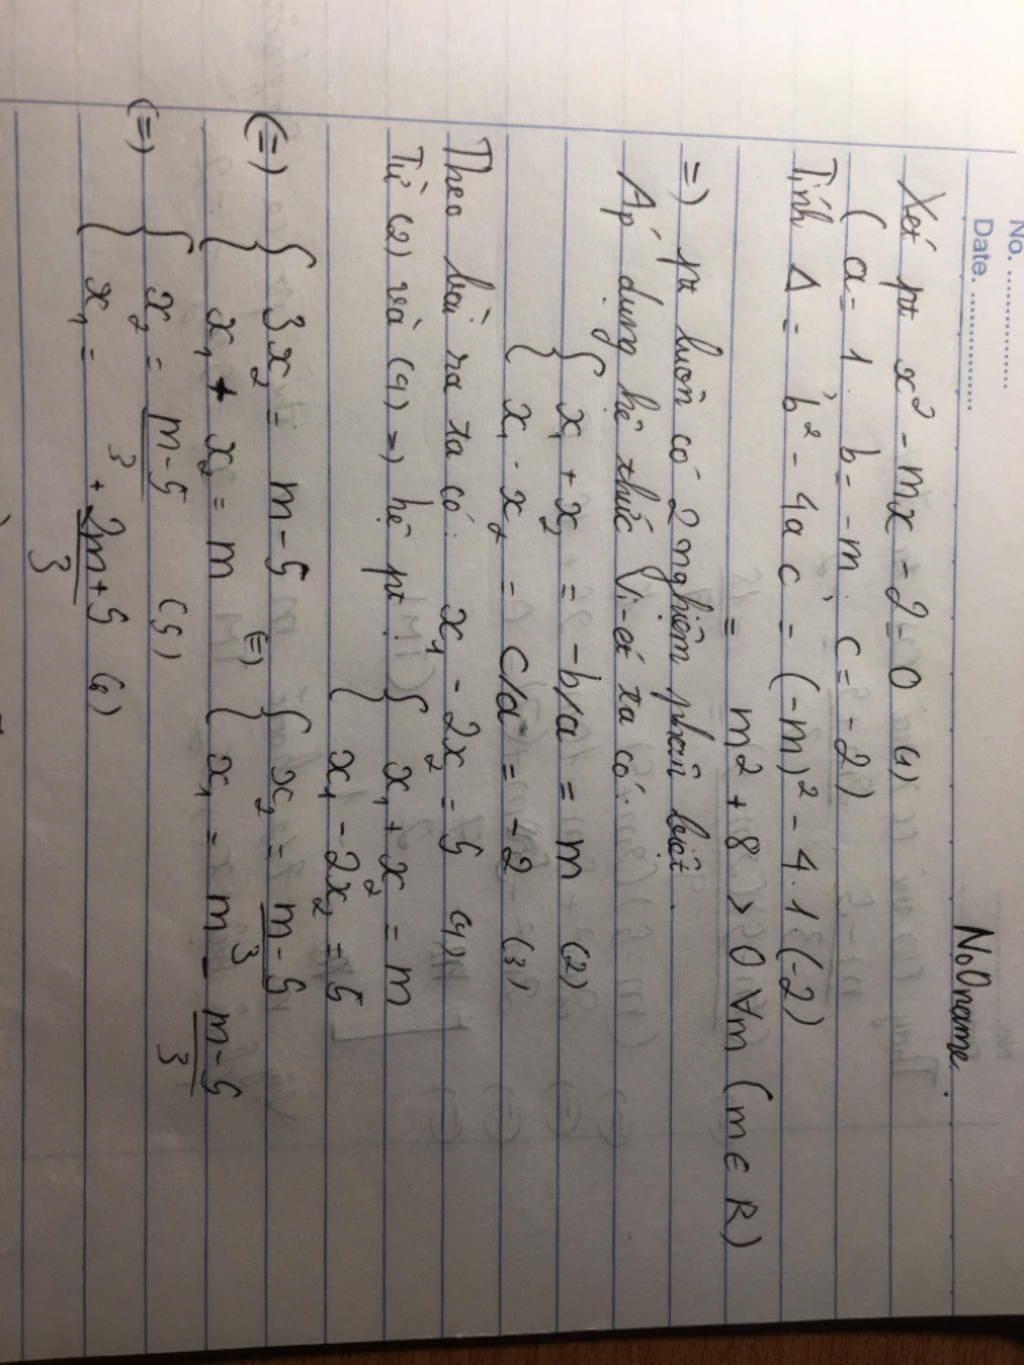 No. ................
Date. ................
NoOname.
Xét pt x² - mx - 2 = 0 (1)
( a = 1 ; b = -m ; c = -2 )
Tính Δ = b² - 4ac = (-m)² - 4.1(-2)
= m² + 8 > 0 ∀m (m ∈ R)
=) pt luôn có 2 nghiệm phân biệt.
Áp dụng hệ thức Vi-ét ta có:
{ x₁ + x₂ = -b/a = m (2)
{ x₁ . x₂ = c/a = -2 (3)
Theo bài ra ta có: x₁ - 2x₂ = 5 (4)
Từ (2) và (4) =) hệ pt: { x₁ + x₂ = m
{ x₁ - 2x₂ = 5
(=) { 3x₂ = m - 5 (=) { x₂ = m-5/3
{ x₁ + x₂ = m { x₁ = m - m-5/3
(=) { x₂ = m-5/3 (5)
{ x₁ = + 2m+5/3 (6)